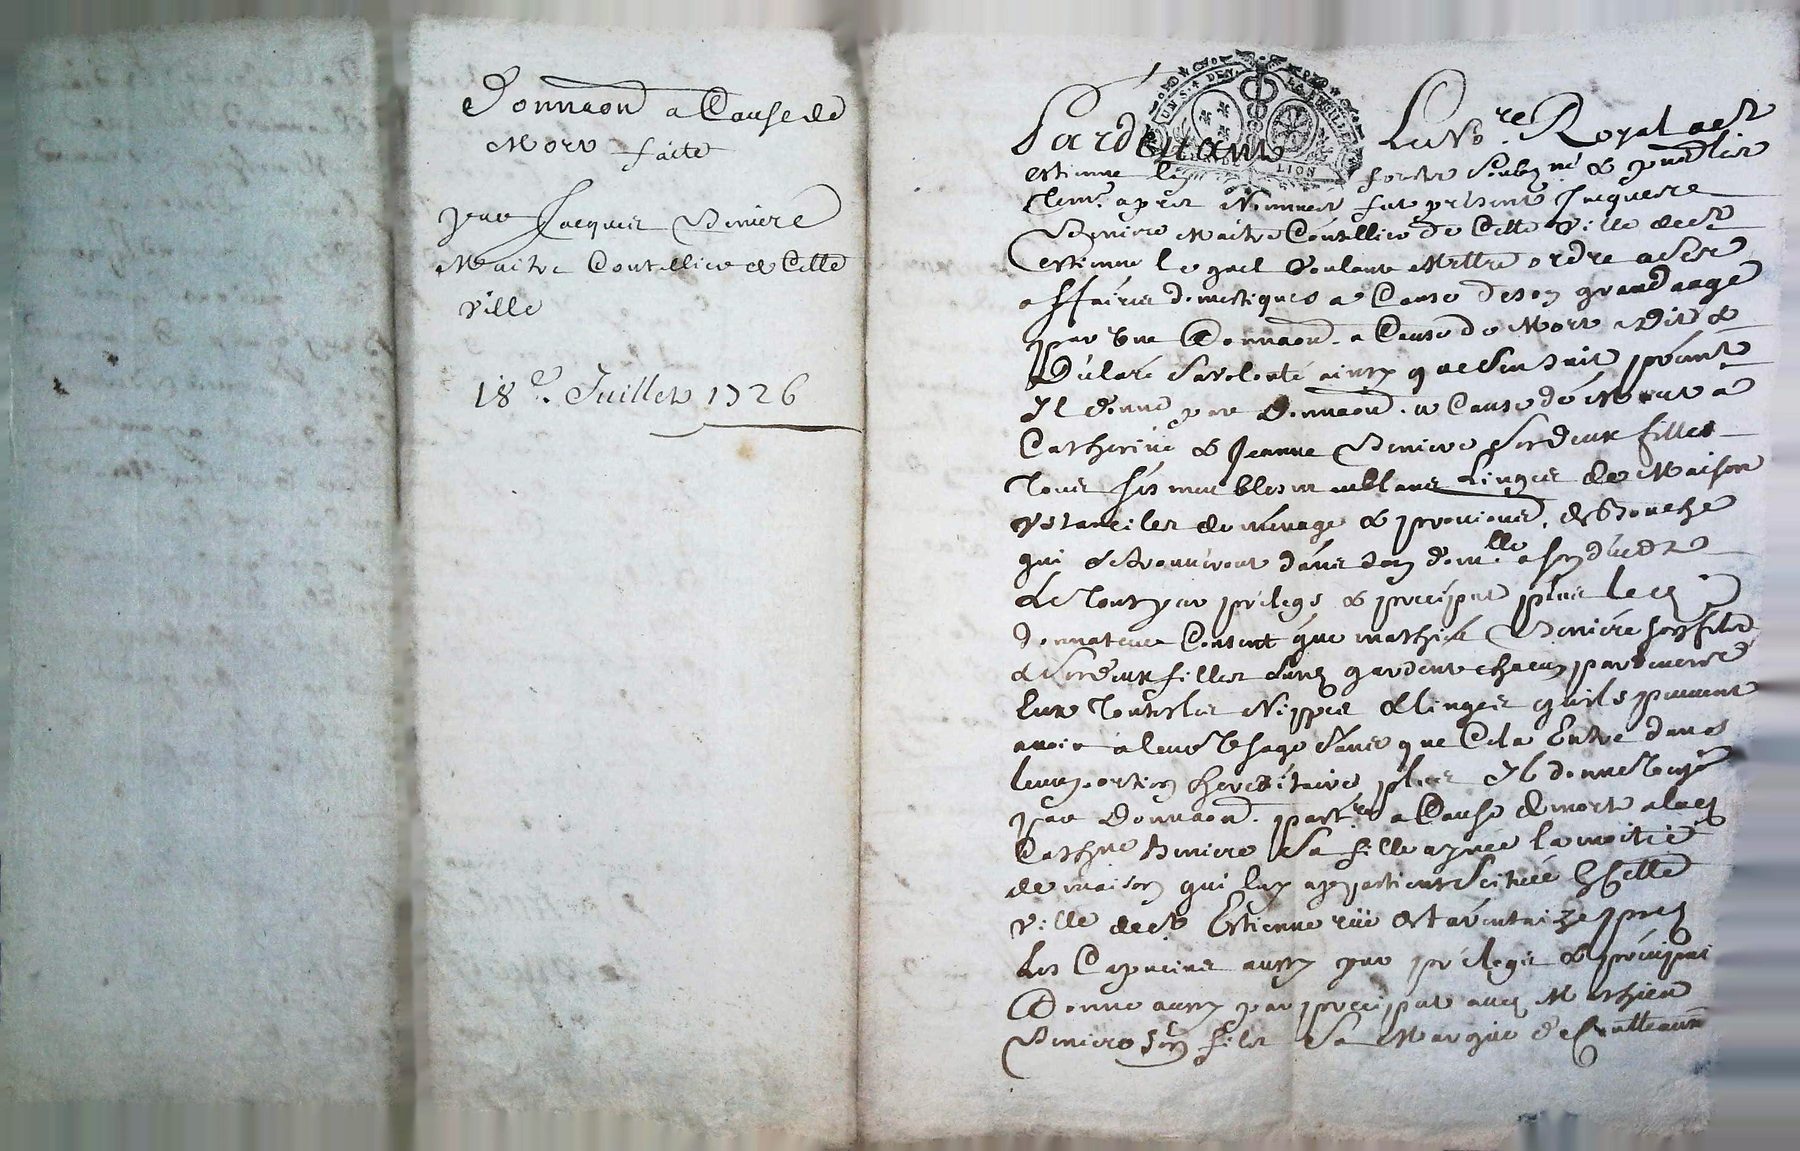 Donnaon a Cause de
Mort faite
par Jacques Benière
Maitre Coutellier de Cette
ville
18e. Juillet 1726
UN S. 4 DEN. LA FEUILLE
LION
Pardevant Le No.re Royal de St
estienne
temo. apres Nommes fut present Jacques
Beniere Maitre Coutellier de Cette Ville de St
estienne lequel voulant Mettre ordre a ses
affaires domestiques a Cause de son grand aage
par une Donnaon. a Cause de Mort a Dit &
Déclaré sa volonté ainsy que s'en suit
Il donne par Donnaon. a Cause de Mort a
Catherine & Jeanne Beniere ses deux filles
Tous ses meubles meublans Linges de Maison
ustanciles de ménage & provisions de Bouche
qui se trouveront dans son domlle a son déceds
Le Tout par prélegs & préciput plus led
donnateur Consent que Mathieu Beniere son fils
& ses deux filles susd gardent chacun pardevers
Eux Toutes les Nippes & linges qu'ils peuvent
avoir a leur Usage sans que Cela Entre dans
leur portion hereditaire plus Il donne
par Donnaon. a Cause de mort a lad
Cathne Beniere sa fille aynée la moitié
de maison qui luy appartient scituée en Cette
ville de St Estienne rüe près
Les Capucins aussy par prélegs & préciput
Donne aussy par preciput aud Mathieu
Beniere son fils sa Marque de Coutteaux